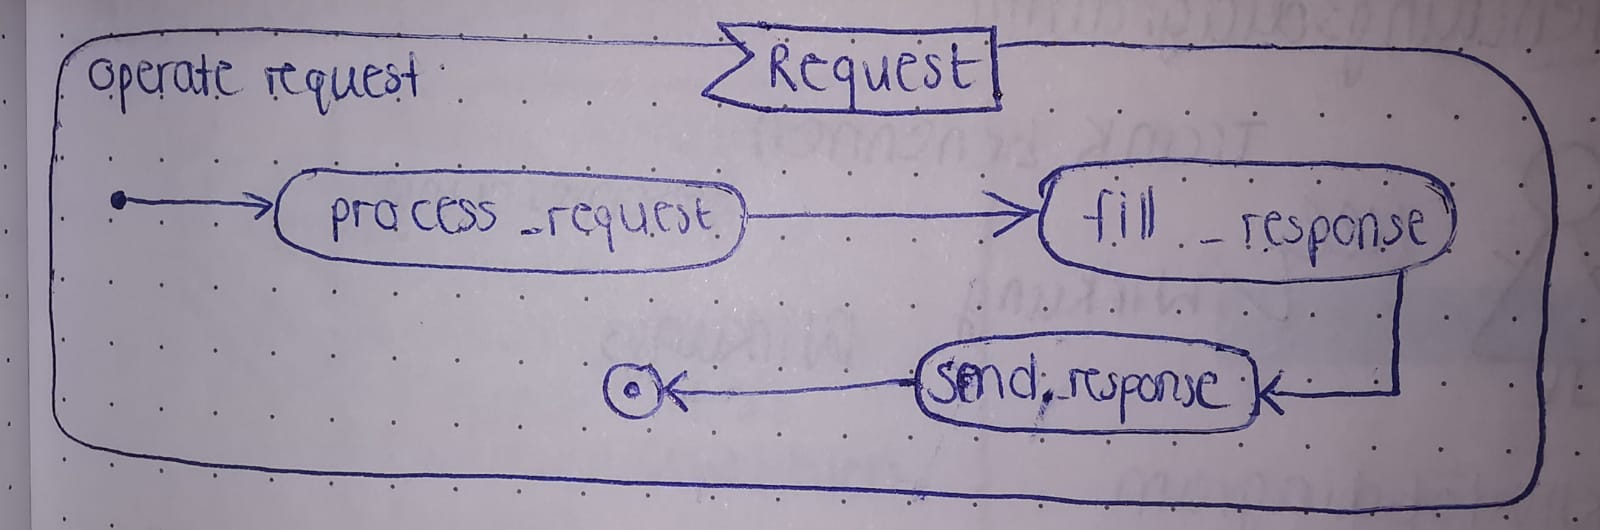 operate request
Request
process_request
fill_response
send_response